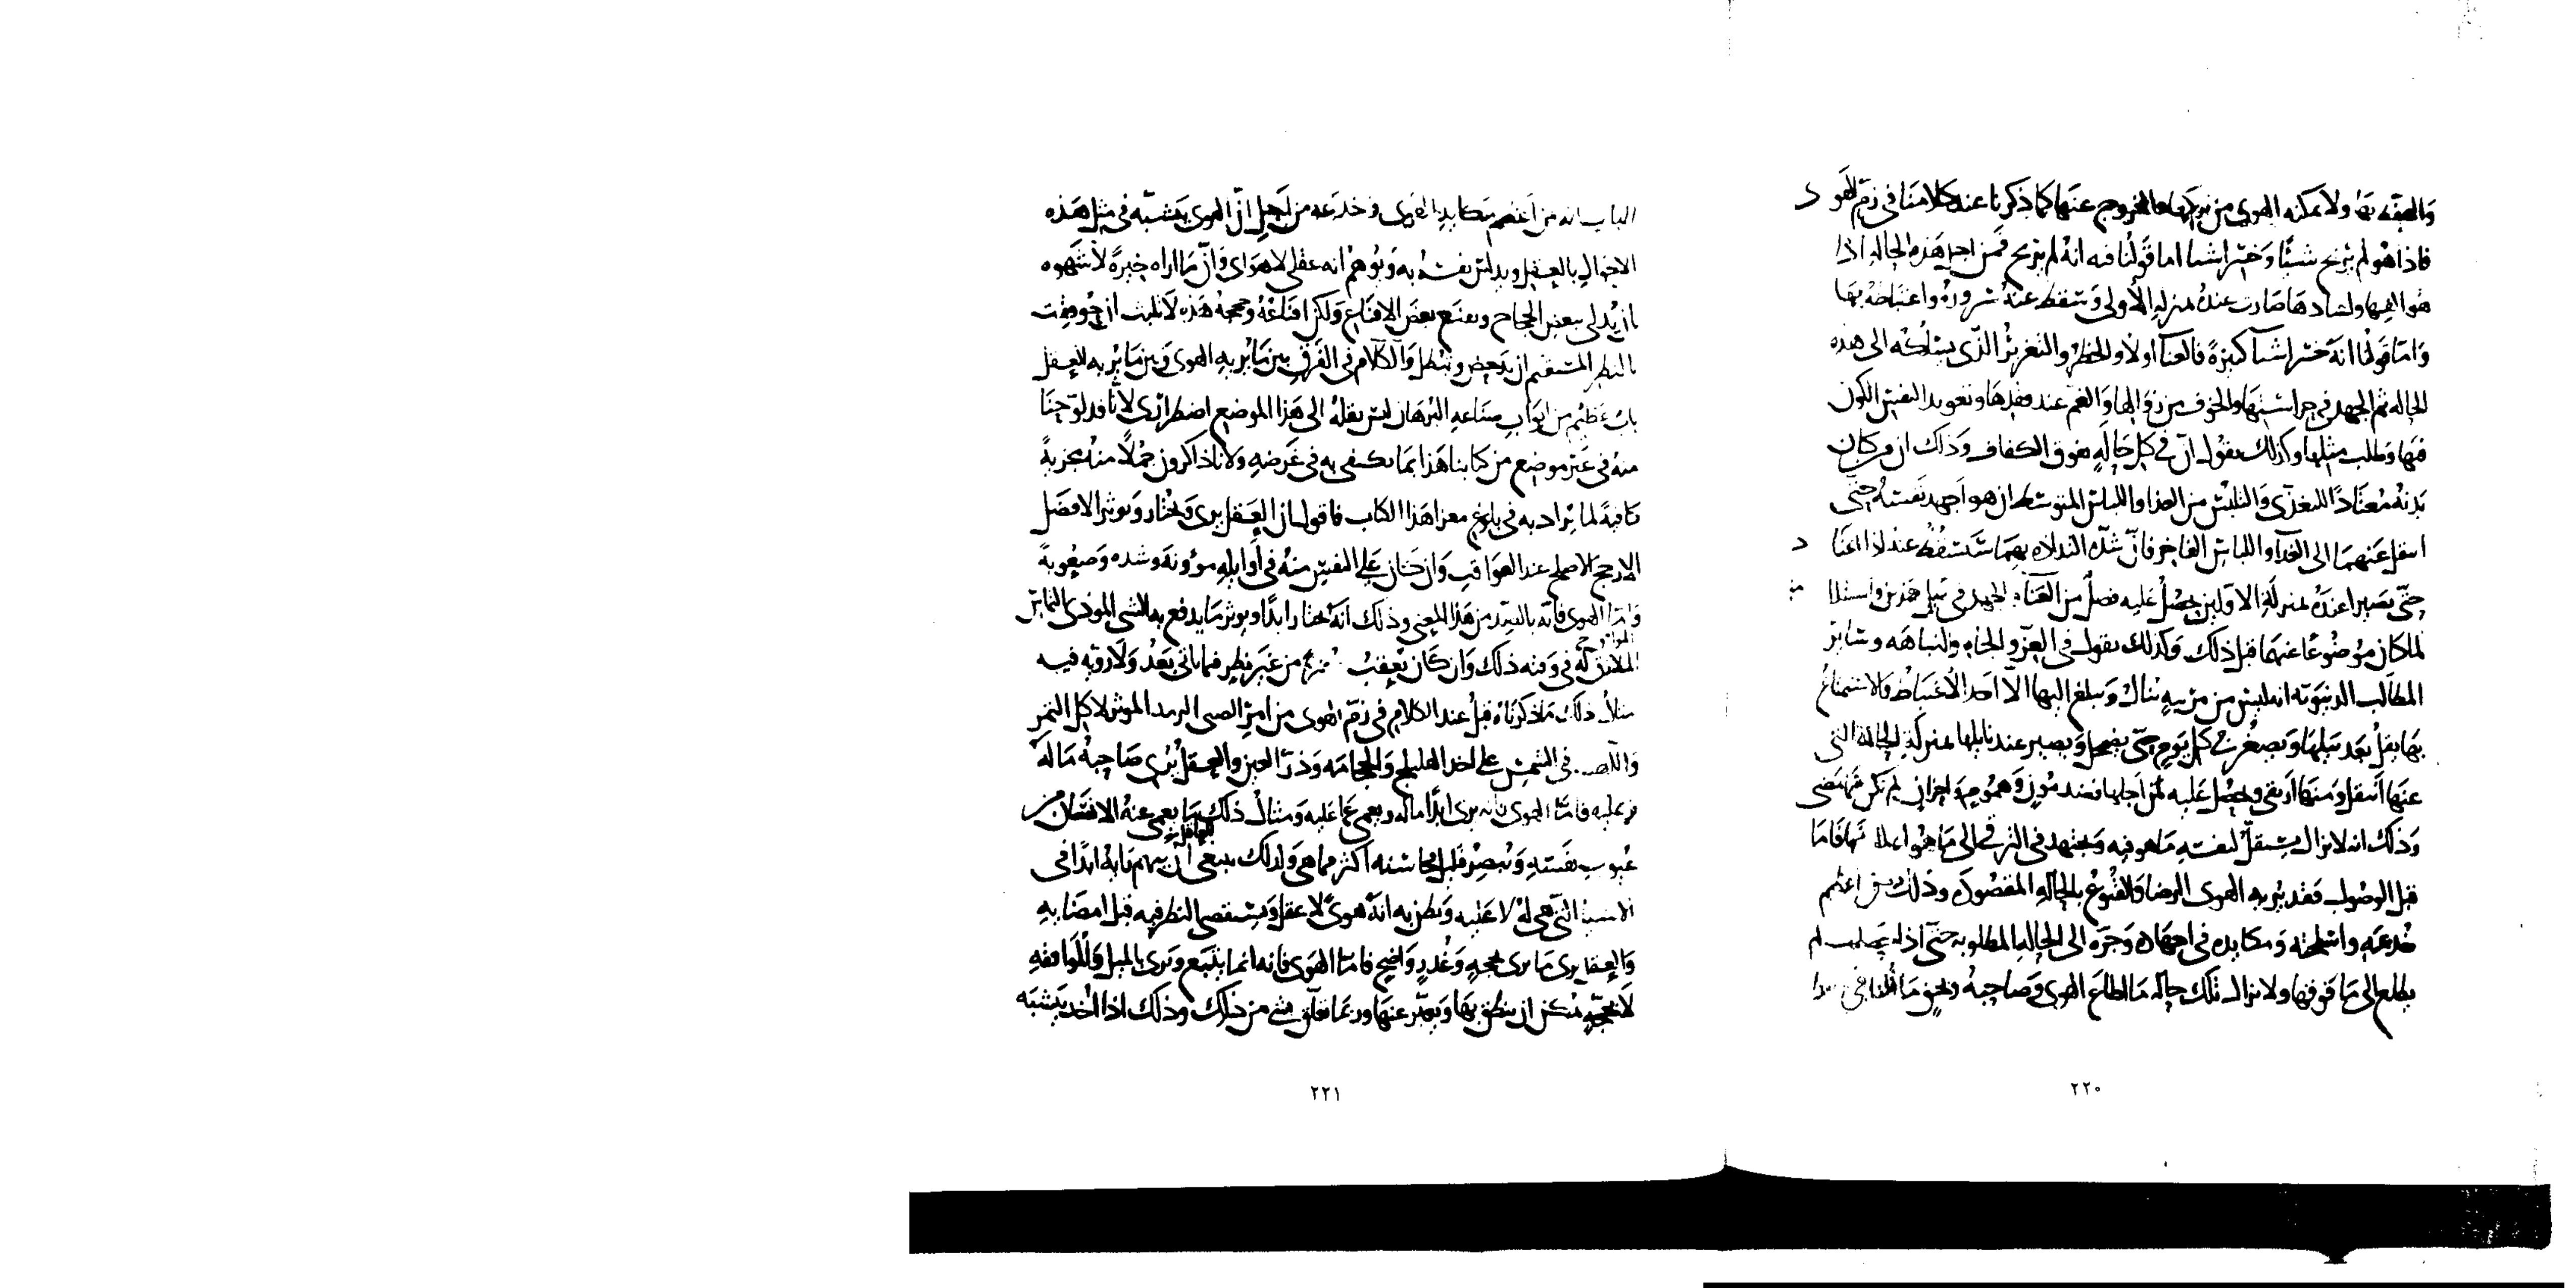 والمقة بها ولا يمكنه الهوى من والخروج عنها كما ذكرنا عند كلامنا في زم الهوى
فاذا هو لم يربح شيئا وخسر اشيا اما قولنا فيه انه لم يربح فمن اجل هذه الحاله اذا
هو الفها واعتادها صارت عنده بمنزلة الأولى وسقط عنه سروره واغتباطه بها
واما قولنا انه خسر اشيا كثيرة فالعنا اولا والخطر والتغرير الذي يسلكه الى هذه
الحاله ثم الجهد في حراستها والخوف من زوالها والغم عند فقدها وتعويد النفس الكون
فيها وطلب مثلها وكذلك نقول في كل حالة تفوق الكفاف وذلك ان من كان
بدنه معتادا للتغذي والتلبس من الغذا واللباس المتوسط ان هو اجهد نفسه حتى
انتقل عنهما الى الغذا واللباس الفاخر فان شدة التذاذه بهما تسقط عنه اذا اعتا د
حتى يصيرا عنده بمنزلة الاولين ويحصل عليه فضل من العنا والجهد في نيل هذين واستدا مة
لما كان موضوعا عنهما قبل ذلك وكذلك نقول في العز والجاه والنباهه وسائر
المطالب الدنيويه انه ليس من مرتبة تنال ويبلغ اليها الا وجد الاغتباط والاستمتاع
بها يقل بعد نيلها ويصغر في كل يوم حتى يضمحل ويصير عند نايلها بمنزلة الحالة التي
عنها انتقل ومنها ارتقى ويحصل عليه من اجلها فضل مؤن وهموم واحزان لم تكن فيما مضى
وذلك انه لا يزال يستقل لنفسه ما هو فيه ويجتهد في الترقي الى ما هو اعلا منها فاما
قبل الوصول فقد يريه الهوى الرضا والقنوع بالحالة المقصودة وذلك من اعظم
خدعه واسلحته ومكايده في اجتهاده وجره الى الحاله المطلوبه حتى اذا حصلت له
يطلع الى ما فوقها ولا تزال تلك حاله ما اطاع الهوى وصاحبه ونحو ما قلنا في هذا
٢٢٠
الباب انه من اعظم مكايد الهوى وخدعه من اجل ان الهوى يتشبه في مثل هذه
الاحوال بالعقل ويدلس نفسه به ويوهم انه عقلي لا هوائي وان ما اراه خيرة لا شهوه
بان يدلي ببعض الحجاج ويقنع بعض الاقناع ولكن اقناعه وحججه هذه لا تلبث ان قوبلت
بالنظر المستقيم ان تدحض وتبطل والكلام في الفرق بين ما يريه الهوى وبين ما يريه العقل
باب عظيم من ابواب صناعة البرهان ليس نقله الى هذا الموضع اضطراري لانا قد لوحنا
منه في غير موضع من كتابنا هذا بما يكتفى به في غرضه ولانا ذاكرون جملا منه مجزية
كافية لما يراد به في بلوغ مغزا هذا الكتاب فاقول ان العقل يرى ويختار ويوثر الافضل
الارجح الاصلح عند العواقب وان كان على النفس منه في اوايله مؤونة وشده وصعوبة
واما الهوى فانه بالضد من هذا المعنى وذلك انه يختار ابدا ويوثر ما يدفع به الشي الموذي المماس
الملازق له في وقته ذلك وان كان يعقب مضرة من غير نظر فيما ياتي بعد ولا رويه فيه
مثال ذلك ما ذكرناه قبل عند الكلام في زم الهوى من امر الصبي الرمد الموثر لاكل التمر
واللعب في الشمس على اخذ الهليلج والحجامة وذر العين والعقل يري صاحبه ما له
وعليه فاما الهوى فانه يرى ابدا ما له ويعمى عما عليه ومثال ذلك ما يعمى عنه الانسان من
عيوب نفسه ويبصر قليل محاسنه اكثر مما هي ولذلك ينبغي للعاقل ان يتهم رايه ابدا في
الاشيا التي هي له لا عليه ويظن به انه هوى لا عقل ويستقصي النظر فيه قبل امضايه
والعقل يرى ما يرى بحجة وعذر واضح فاما الهوى فانه انما يقنع ويرى بالميل والموافقة
لا بحجة يمكن ان ينطق بها ويعبر عنها وربما تعلق بشي من ذلك وذلك اذا اخذ يتشبه
٢٢١